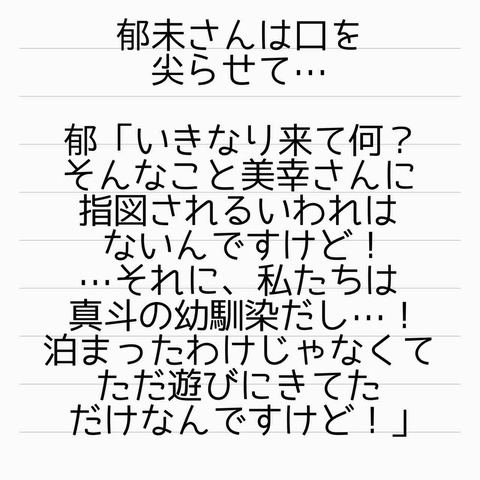 郁未さんは口を
尖らせて…
郁「いきなり来て何？
そんなこと美幸さんに
指図されるいわれは
ないんですけど！
…それに、私たちは
真斗の幼馴染だし…！
泊まったわけじゃなくて
ただ遊びにきてた
だけなんですけど！」